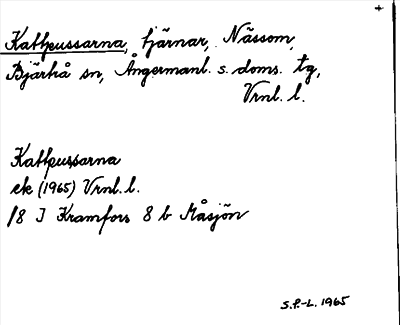 +
Kattpussarna, tjärnar, Nässom,
Bjärtrå sn, Ångermanl. s. doms. tg,
Vrnl. l.
Kattpussarna
ek (1965) Vrnl. l.
18 I Kramfors 8 b Måsjön
S.P.-L. 1965